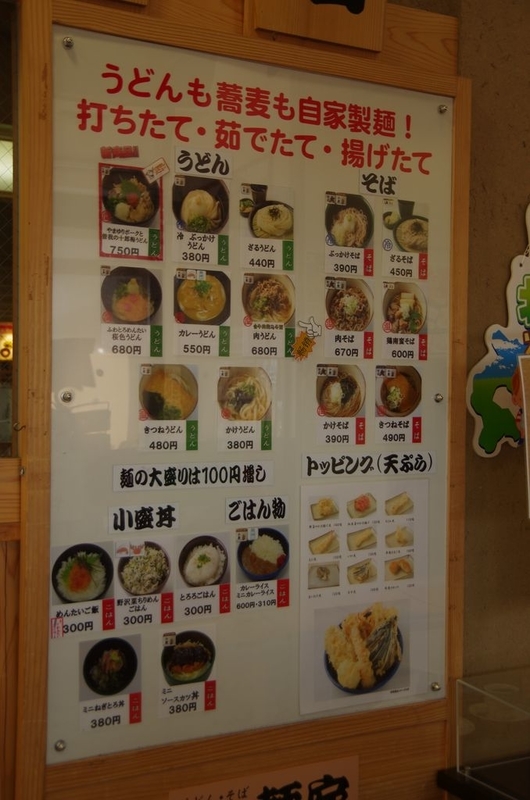 うどんも蕎麦も自家製麺！
打ちたて・茹でたて・揚げたて
うどん
やまゆりポークと
750円
うどん
冷 ぶっかけ
うどん
380円
うどん
ざるうどん
440円
うどん
ふわとろめんたい
桜色うどん
680円
うどん
カレーうどん
550円
うどん
肉うどん
680円
きつねうどん
480円
うどん
かけうどん
380円
うどん
そば
ぶっかけそば
390円
そば
ざるそば
450円
そば
肉そば
670円
そば
鴨南蛮そば
600円
そば
かけそば
390円
そば
きつねそば
490円
そば
麺の大盛りは100円増し
小盛丼
ごはん物
めんたいご飯
300円
ごはん
野沢菜ちりめん
ごはん
300円
ごはん
とろろごはん
300円
ごはん
カレーライス
ミニカレーライス
600円・310円
ごはん
ミニねぎとろ丼
380円
ごはん
ミニ
ソースカツ丼
380円
ごはん
トッピング（天ぷら）
うどん・そば